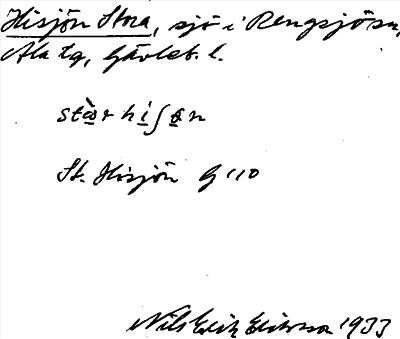 Hisjön Stora, sjö i Rengsjö sn,
Ala tg, Gävleb. l.
stòr hiʃøn
St. Hisjön G 110
Nils Erik Eriksson 1933